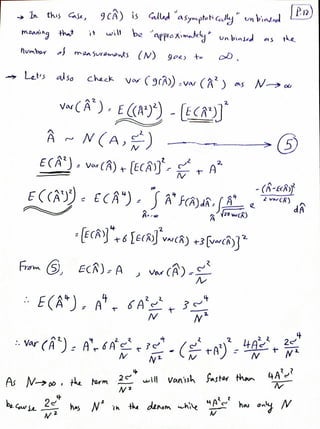 P12
→ In this Case, g(Â) is Called "asymptotically" unbiased
meaning that it will be "approximately" unbiased as the
number of measurements (N) goes to ∞.
→ Let's also check var(g(Â)) = var(Â²) as N→∞
var(Â²) = E((Â²)²) - [E(Â²)]²
Â ~ N(A, σ²/N) → (5)
E(Â²) = var(Â) + [E(Â)]² = σ²/N + A²
E((Â²)²) = E(Â⁴) = ∫_{Â=-∞}^{∞} Â⁴ f(Â) dÂ = ∫_Â Â⁴/√(2π var(Â)) e^{-(Â-E(Â))²/(2 var(Â))} dÂ
= [E(Â)]⁴ + 6 [E(Â)]² var(Â) + 3 [var(Â)]²
From (5), E(Â) = A , var(Â) = σ²/N
∴ E(Â⁴) = A⁴ + 6A² σ²/N + 3 σ⁴/N²
∴ var(Â²) = A⁴ + 6A² σ²/N + 3 σ⁴/N² - (σ²/N + A²)² = 4A²σ²/N + 2σ⁴/N²
As N→∞, the term 2σ⁴/N² will vanish faster than 4A²σ²/N
because 2σ⁴/N² has N² in the denom while 4A²σ²/N has only N